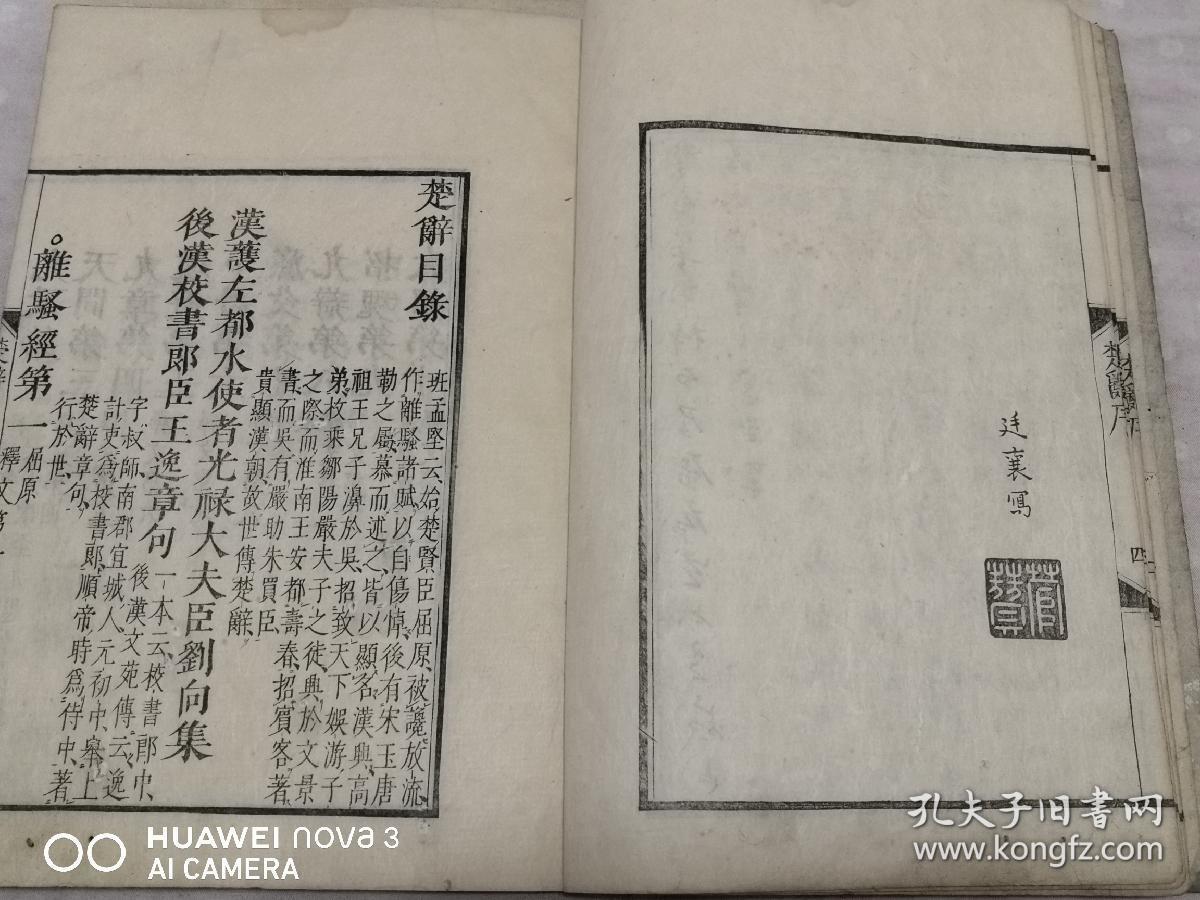 廷襄寫
楚辭序
四
楚辭目錄
班孟堅云、始楚賢臣屈原、被讒放流、
作離騷諸賦、以自傷悼、後有宋玉唐
勒之屬、慕而述之、皆以顯名、漢興、高
祖王兄子濞於吳、招致天下娛游子
弟、枚乘鄒陽嚴夫子之徒、興於文景
之際、而淮南王安都壽春、招賓客著
書、而吳有嚴助朱買臣、
貴顯漢朝、故世傳楚辭、
漢護左都水使者光禄大夫臣劉向集
後漢校書郎臣王逸章句
一本云、校書郎中、
後漢文苑傳云、逸
字叔師、南郡宜城人、元初中、舉上
計吏、爲校書郎、順帝時爲侍中、著
楚辭章句、
行於世、
離騷經第一
屈原
釋文第一
楚辭
HUAWEI nova 3
AI CAMERA
孔夫子旧書网
www.kongfz.com